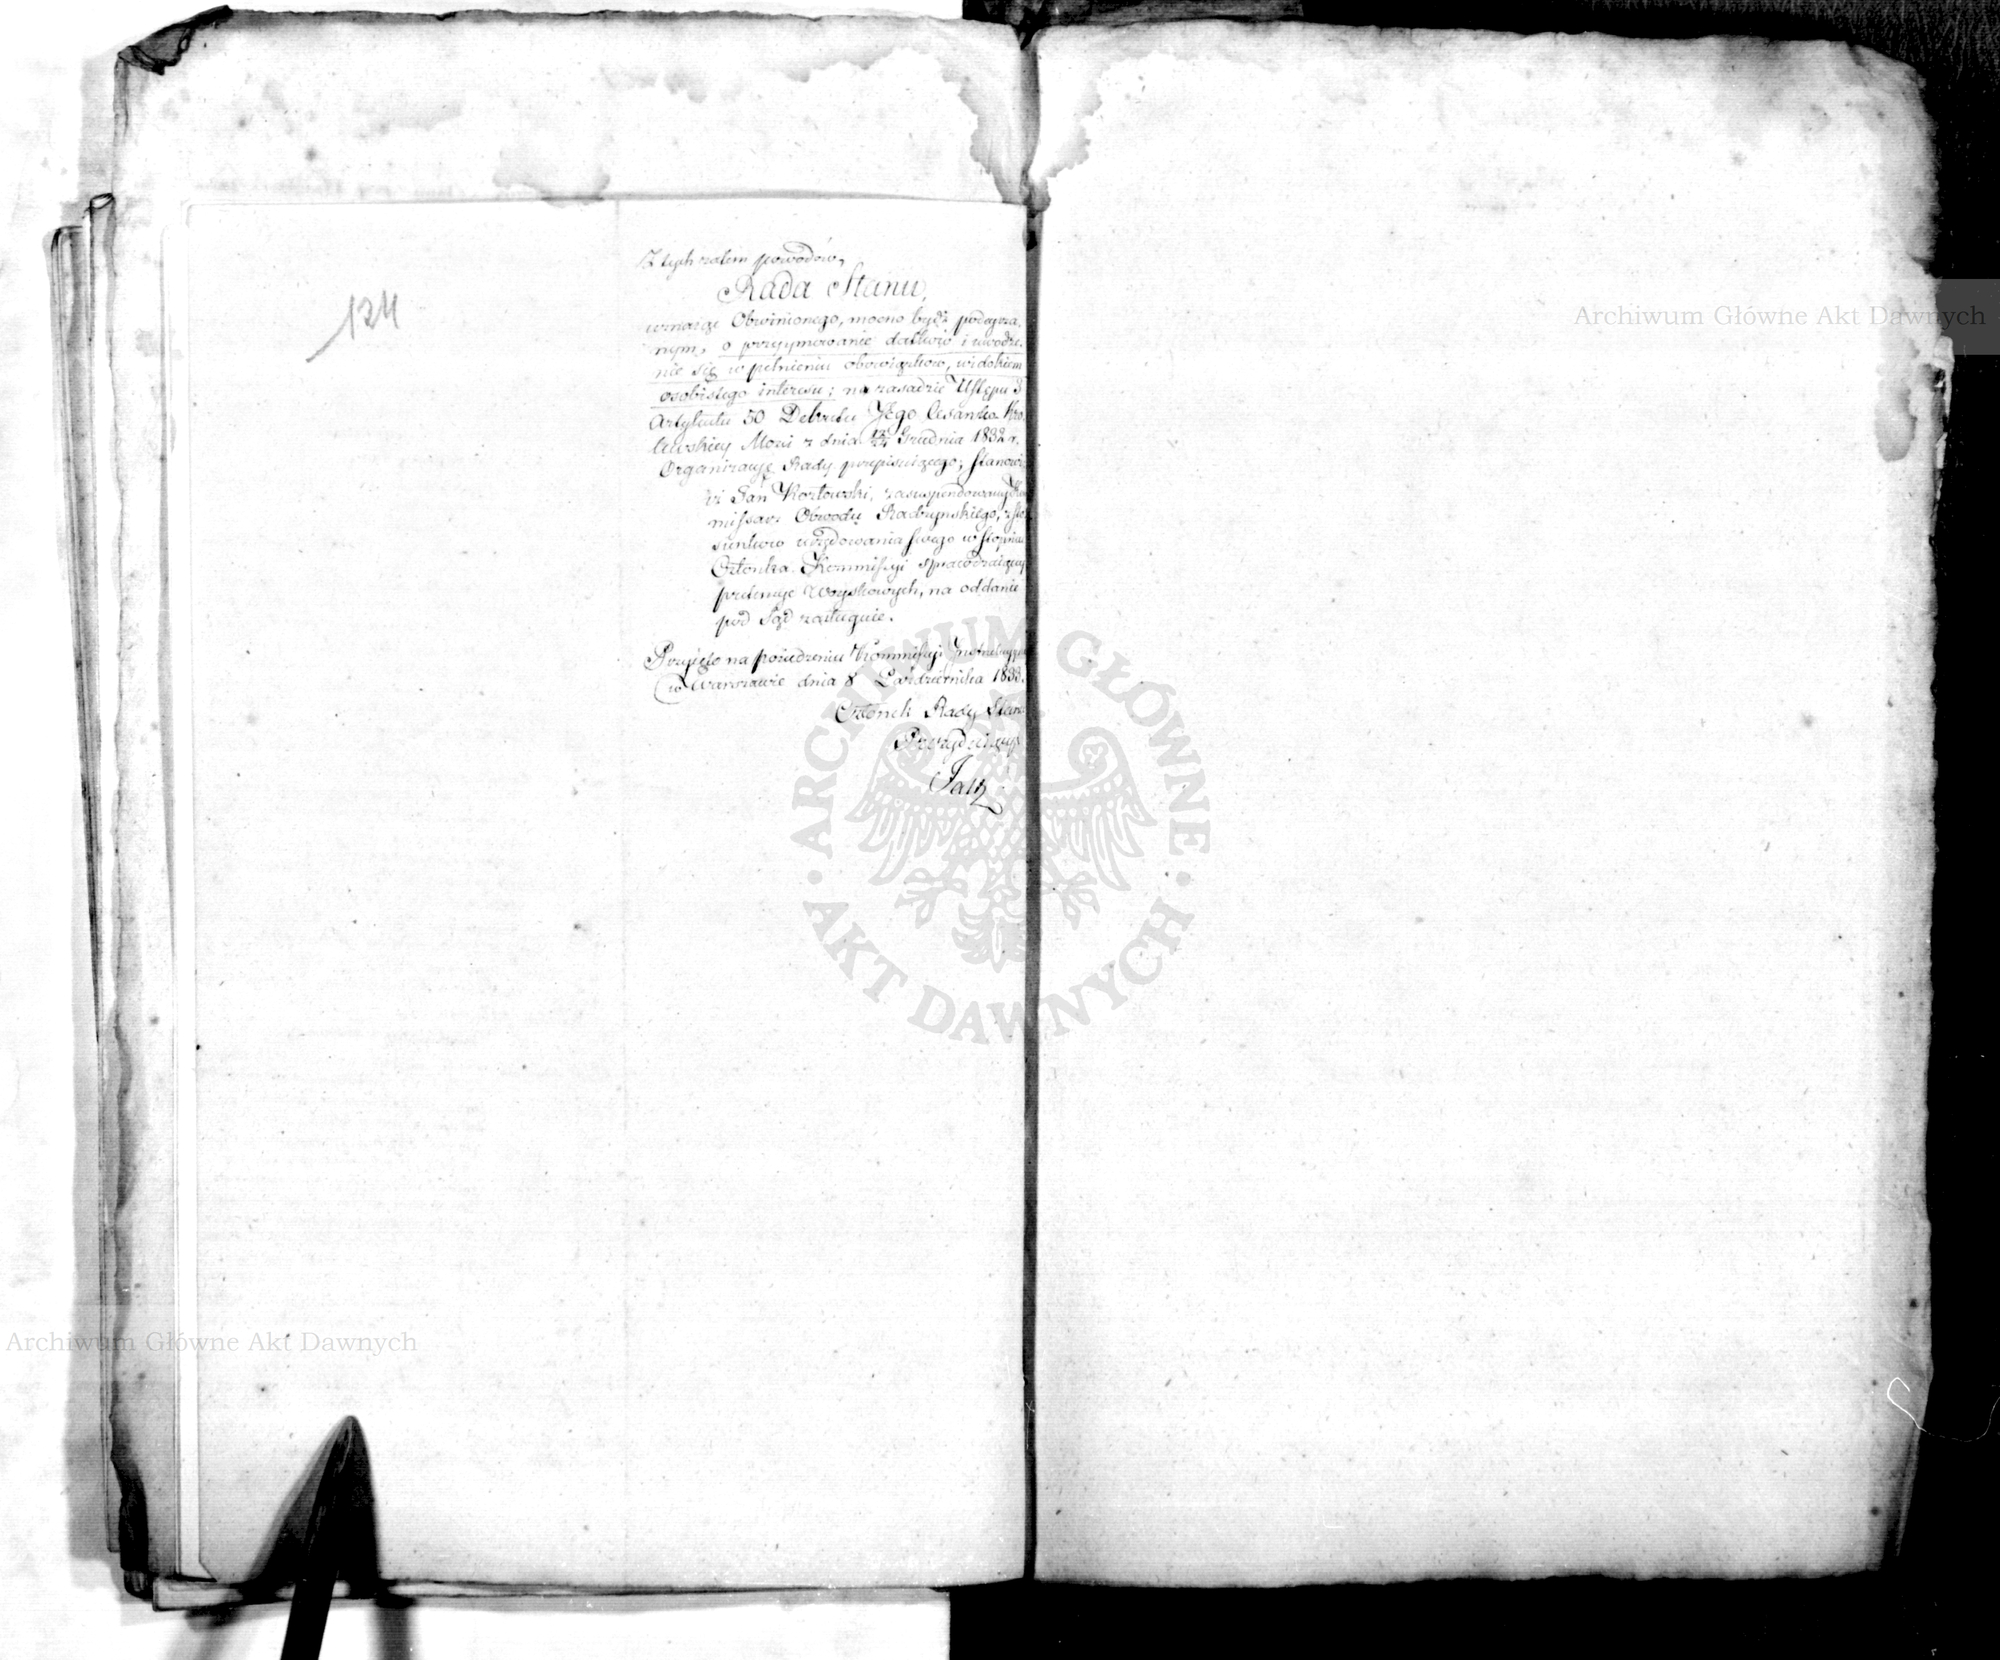 134
Z tych zatem powodów,
Rada Stanu,
uznaiąc Obwinionego, mocno bydź podeyrza-
nym, o przyymowanie datków i uwodze-
nie się w pełnieniu obowiązków, widokiem
osobistego interesu; na zasadzie Ustępu 3
Artykułu 50 Dekretu Jego Cesarsko Kró-
lewskiey Mości z dnia 12/24 Grudnia 1832 r.
Organizacyę Rady przepisuiącego; stanowi:
iż Jan Kozłowski, zasuspendowany Kom-
missarz Obwodu Radzynskiego, z sto-
sunków urzędowania swego w stopniu
Członka Kommissyi sprawdzaiącey
pretensye Woyskowych, na oddanie
pod Sąd zasługuie.
Przyięto na posiedzeniu Kommissyi Instrukcyyney
w Warszawie dnia 8 Października 1833.
Członek Rady Stanu
Prezyduiący
Archiwum Główne Akt Dawnych
Archiwum Główne Akt Dawnych
ARCHIWUM GŁÓWNE
AKT DAWNYCH